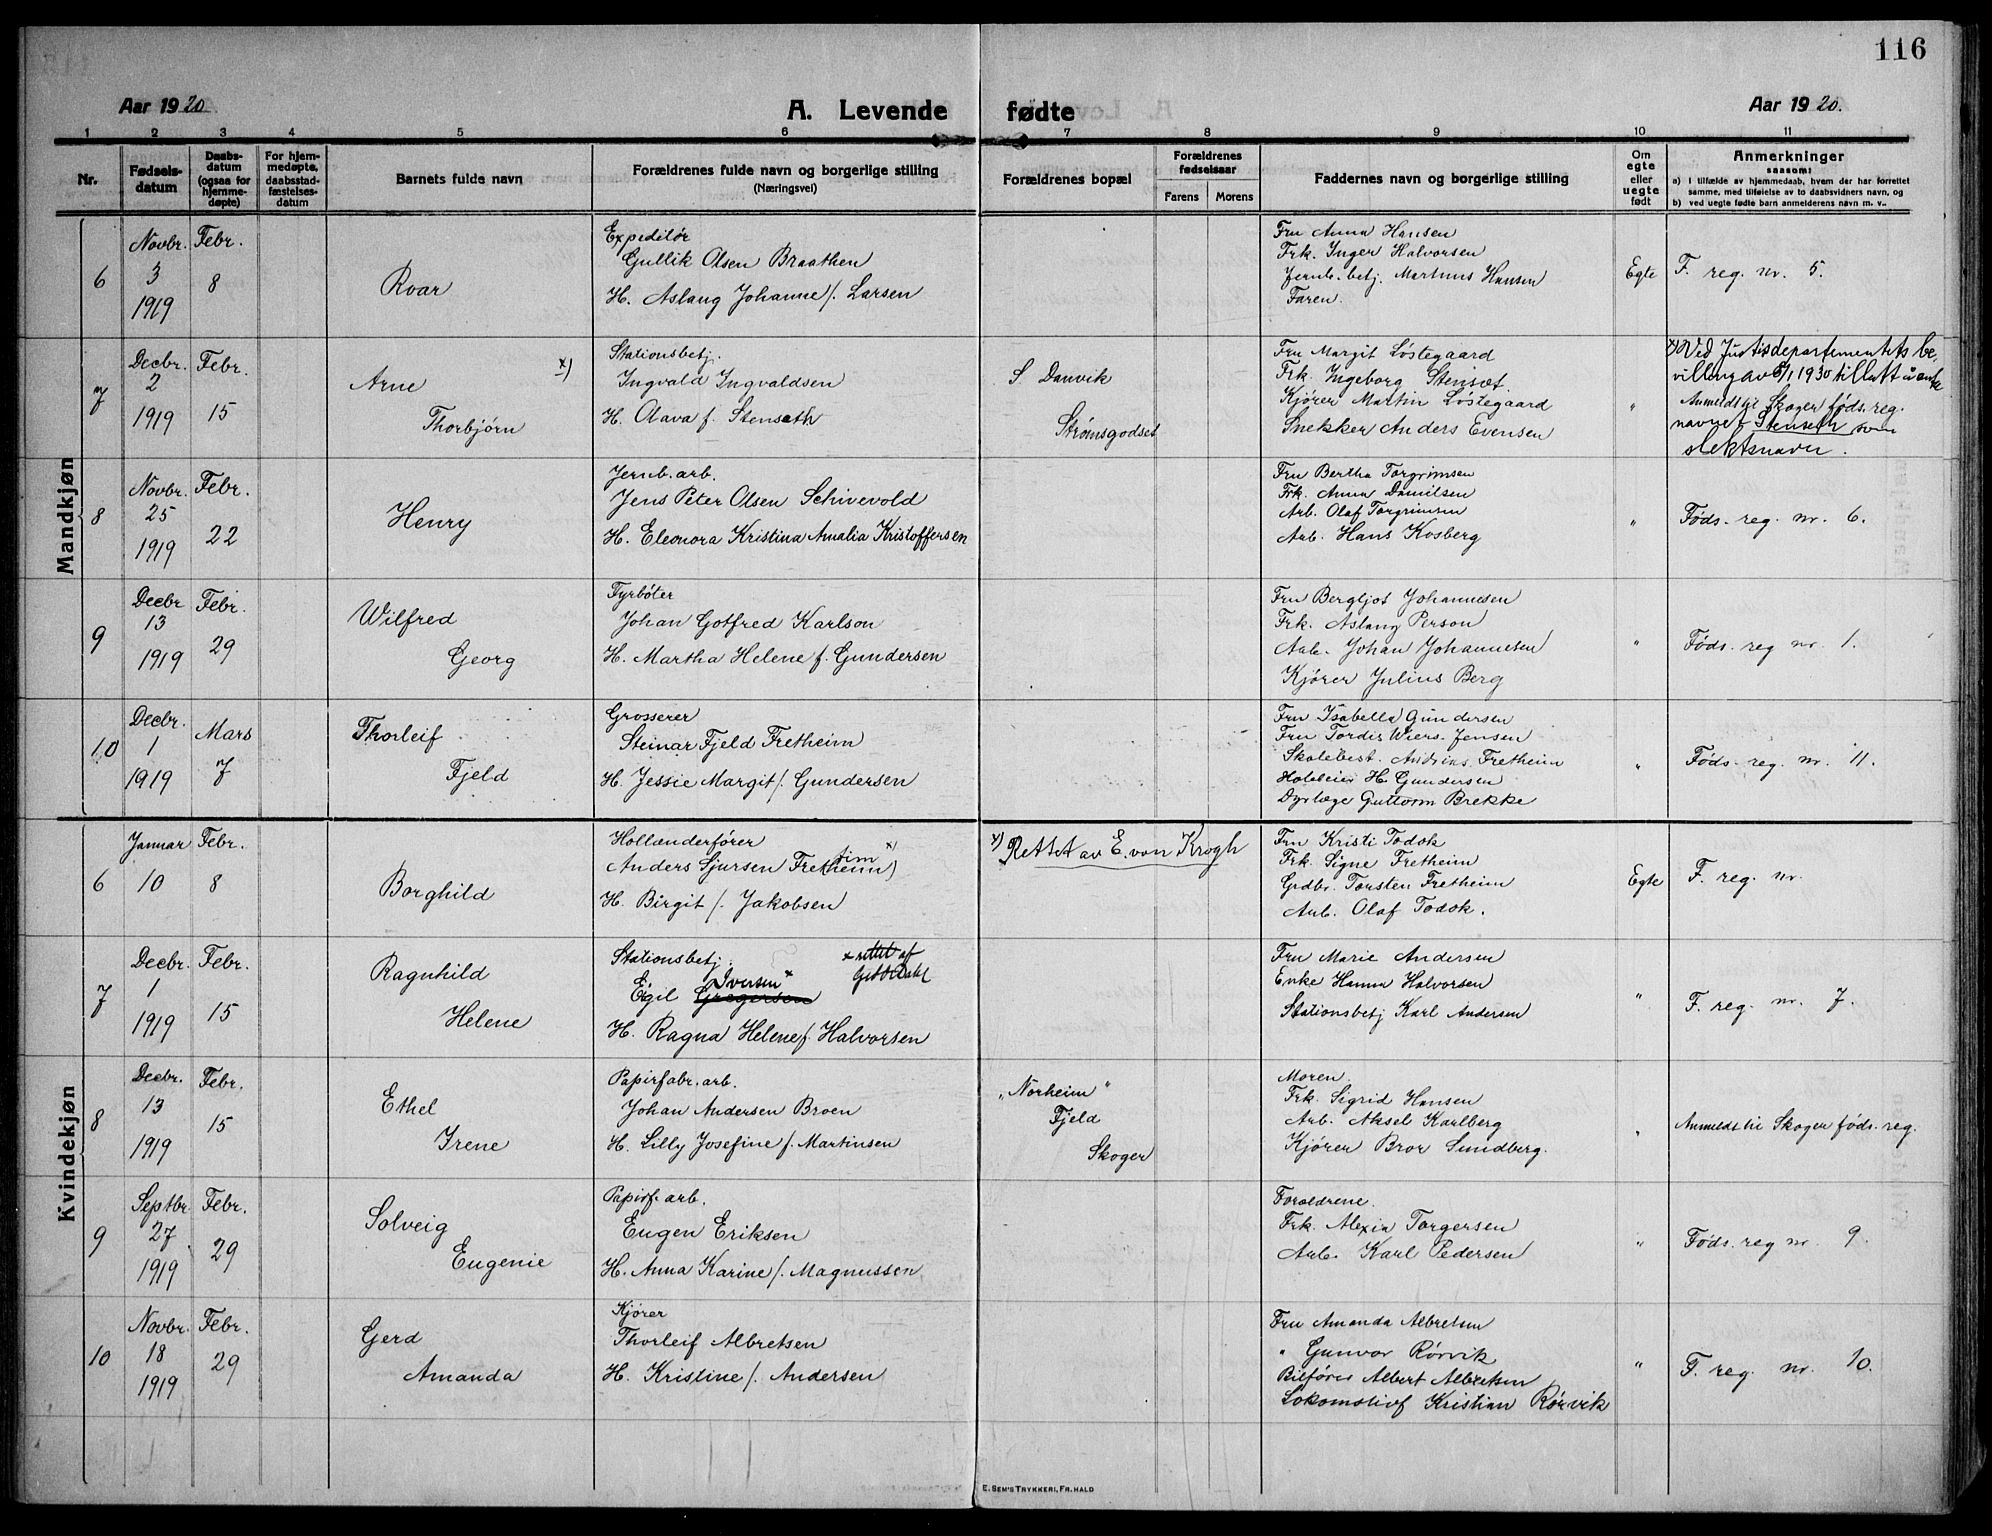 116
Aar 1920.
A. Levende fødte
Aar 1920.
1 2 3 4 5 6 7 8 9 10 11
Nr.
Fødsels-
datum
Daabs-
datum
(ogsaa for
hjemme-
døpte)
For hjem-
medøpte,
daabsstad-
fæstelses-
datum
Barnets fulde navn
Forældrenes fulde navn og borgerlige stilling
(Næringsvei)
Forældrenes bopæl
Forældrenes
fødselsaar
Farens Morens
Faddernes navn og borgerlige stilling
Om
egte
eller
uegte
født
Anmerkninger
saasom:
a) i tilfælde av hjemmedaab, hvem der har forrettet
samme, med tilføielse av to daabsvidners navn, og
b) ved uegte fødte barn anmelderens navn m. v..
Mandkjøn
6
Novbr.
3
1919
Febr.
8
Roar
Expeditør
Gullik Olsen Braathen
H. Aslaug Johanne f. Larsen
Fru Anna Hansen
Frk. Inger Halvorsen
Jernb. betj. Martinus Hansen
Faren.
Egte
F. reg. nr. 5.
7
Decbr.
2
1919
Febr.
15
Arne x)
Thorbjørn
Stationsbetj.
Ingvald Ingvaldsen
H. Olava f. Stenseth
S. Danvik
Strømsgodset
Fru Margit Løstegaard
Frk. Ingeborg Stenset
Kjører Martin Løstegaard
Snekker Anders Evensen
"
x) Ved Justisdepartementets be-
villing av 8/1 1930 tillatt å anta
Anmeldt til Skoger føds. reg.
navnet Stenseth som
slektsnavn.
8
Novbr.
25
1919
Febr.
22
Henry
Jernb. arb.
Jens Peter Olsen Schivevold
H. Eleonora Kristina Amalia Kristoffersen
Fru Bertha Torgrimsen
Frk. Anna Danielsen
Arb. Olaf Torgrimsen
Arb. Hans Kosberg
"
Føds. reg. nr. 6.
9
Decbr
13
1919
Febr.
29
Wilfred
Georg
Fyrbøter
Johan Gotfred Karlson
H. Martha Helene f. Gundersen
Fru Bergljot Johannesen
Frk. Aslaug Person
Arb. Johan Johannesen
Kjører Julius Berg
"
Føds. reg nr. 1.
10
Decbr.
1
1919
Mars
7
Thorleif
Fjeld
Grosserer
Steinar Fjeld Fretheim
H. Jessie Margit f. Gundersen
Fru Isabella Gundersen
Fru Tordis Wiers-Jensen
Skolebest. Andreas Fretheim
Hoteleier H. Gundersen
Dyrlæge Guttorm Brekke
"
Føds. reg. nr. 11.
Kvindekjøn
6
Januar
10
Febr.
8
Borghild
Hollænderfører
tim x)
Anders Sjursen Fretheim)
H. Birgit f. Jakobsen
x) Rettet av E. von Krogh
Fru Kristi Todok
Frk. Signe Fretheim
Grdbr. Torsten Fretheim
Arb. Olaf Todok.
Egte
F. reg. nr.
7
Decbr.
1
1919
Febr.
15
Ragnhild
Helene
Stationsbetj.
x rettet af
Iversen x
Egil Gregersen
H. Ragna Helene f. Halvorsen
Fru Marie Andersen
Enke Hanna Halvorsen
Stationsbetj Karl Andersen
"
F. reg. nr. 7.
8
Decbr.
13
1919
Febr.
15
Ethel
Irene
Papirfabr. arb.
Johan Andersen Broen
H. Lilly Josefine f. Martinsen
"Norheim"
Fjeld
Skoger
Moren.
Frk. Sigrid Hansen
Arb. Aksel Karlberg
Kjører Bror Sundberg.
"
Anmeldt til Skoger føds. reg.
9
Septbr.
27
1919
Febr.
29
Solveig
Eugenie
Papirf. arb.
Eugen Eriksen
H. Anna Karine f. Magnussen
Forældrene.
Frk. Alexia Torgersen
Arb. Karl Pedersen
"
Føds. reg nr. 9.
10
Novbr.
18
1919
Febr.
29
Gerd
Amanda
Kjører
Thorleif Albretsen
H. Kristine f. Andersen
Fru Amanda Albretsen
" Gunvor Rørvik
Bilfører Albert Albretsen
Lokomotivf Kristian Rørvik
"
F. reg. nr. 10.
E. SEM'S TRYKKERI, FR.HALD